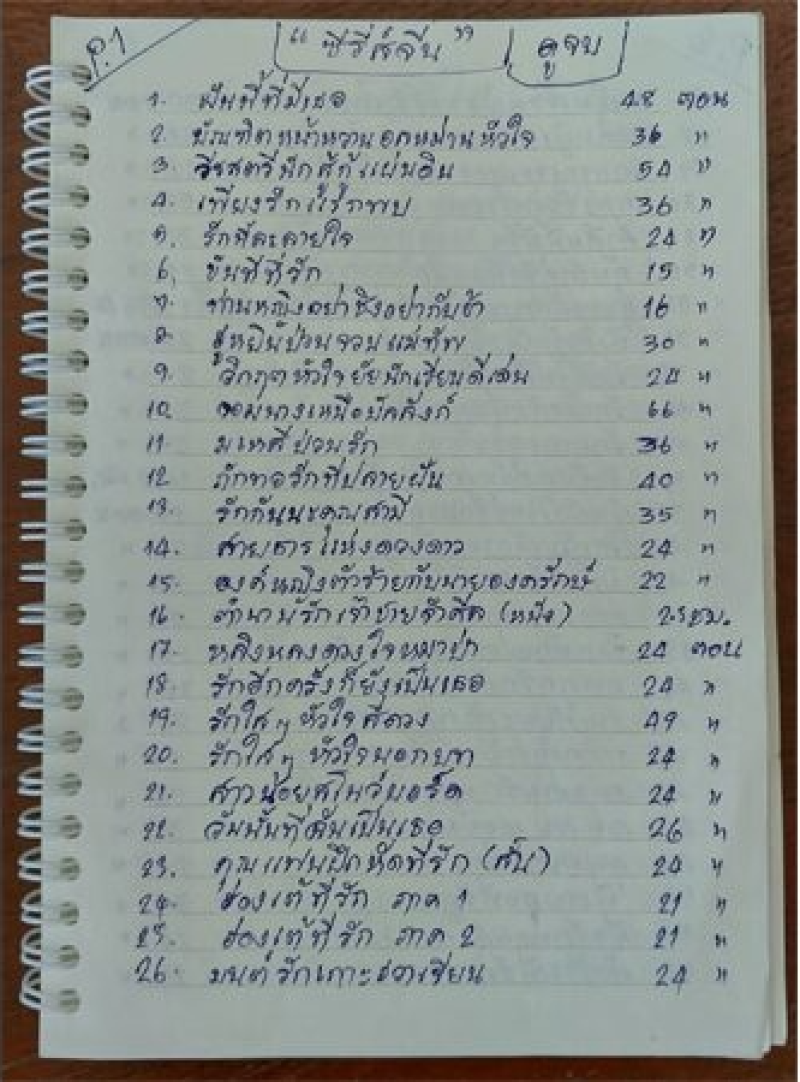 P.1
"ซีรี่ย์จีน" ดูจบ
1. ฝันที่มีเธอ 48 ตอน
2. บัณฑิตหน้าหวานอลหม่านหัวใจ 36 "
3. วีรสตรีนักสู้กู้แผ่นดิน 54 "
4. เพียงรักแรกพบ 36 "
5. รักที่ละลายใจ 24 "
6. ขันทีที่รัก 15 "
7. ท่านหญิงอย่าชิงอย่ากับข้า 16 "
8. ฮูหยินป่วนจวนแม่ทัพ 30 "
9. วิกฤตหัวใจยัยนักเรียนดีเด่น 24 "
10. จอมนางเหนือบัลลังก์ 66 "
11. มเหสีป่วนรัก 36 "
12. ถักทอรักที่ปลายฝัน 40 "
13. รักกันนะคุณสามี 35 "
14. สายธารแห่งดวงดาว 24 "
15. องค์หญิงตัวร้ายกับนายองครักษ์ 22 "
16. ตำนานรักเจ้าชายจำศีล (หนัง) 2.5 ชม.
17. หลิงหลงดวงใจหมาป่า 24 ตอน
18. รักอีกครั้งก็ยังเป็นเธอ 24 "
19. รักใสๆ หัวใจสี่ดวง 49 "
20. รักใสๆ หัวใจนอกบท 24 "
21. สาวน้อยสโนว์บอร์ด 24 "
22. วันนั้นที่ฉันเป็นเธอ 26 "
23. คุณแฟนฝึกหัดที่รัก (สั้น) 24 "
24. ฮ่องเต้ที่รัก ภาค 1 21 "
25. ฮ่องเต้ที่รัก ภาค 2 21 "
26. มนต์รักเกาะสวาเซียน 24 "